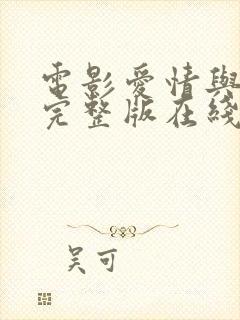 電影愛情與
完整版在綫
吴可